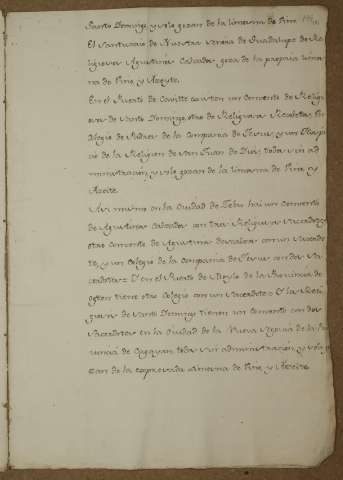 Santo Domingo, y solo gozan de la limosna de Vino
El Santuario de Nuestra Señora de Guadalupe de Re-
ligiosos Agustinos Calzados goza de la propia limos-
na de Vino, y Azeyte.
En el Puerto de Cavitte existen un Convento de Religio-
sos de Santo Domingo, otro de Religiosos Recoletos, un
Colegio de Padres de la Compania de Jesus, y un Hospi-
cio de la Religion de San Juan de Dios, todos sin ad-
ministracion, y solo gozan de la limosna de Vino, y
Azeite.
Asi mismo en la Ciudad de Zebu hai un Convento
de Agustinos Calzados con tres Religiosos Sacerdotes
otro Convento de Agustinos Descalzos con un Sacerdo-
te, y un Colegio de la Compania de Jesus con dos Sa-
cerdotes: Y en el Puerto de Yloylo de la Provincia de
Ogton tiene otro Colegio con un Sacerdote: Y la Reli-
gion de Santo Domingo tienen un Convento con dos
Sacerdotes en la Ciudad de la Nueva Segovia de la Pro-
vincia de Cagayan todos sin administracion, y solo go-
zan de la expresada limosna de Vino, y Azeite.